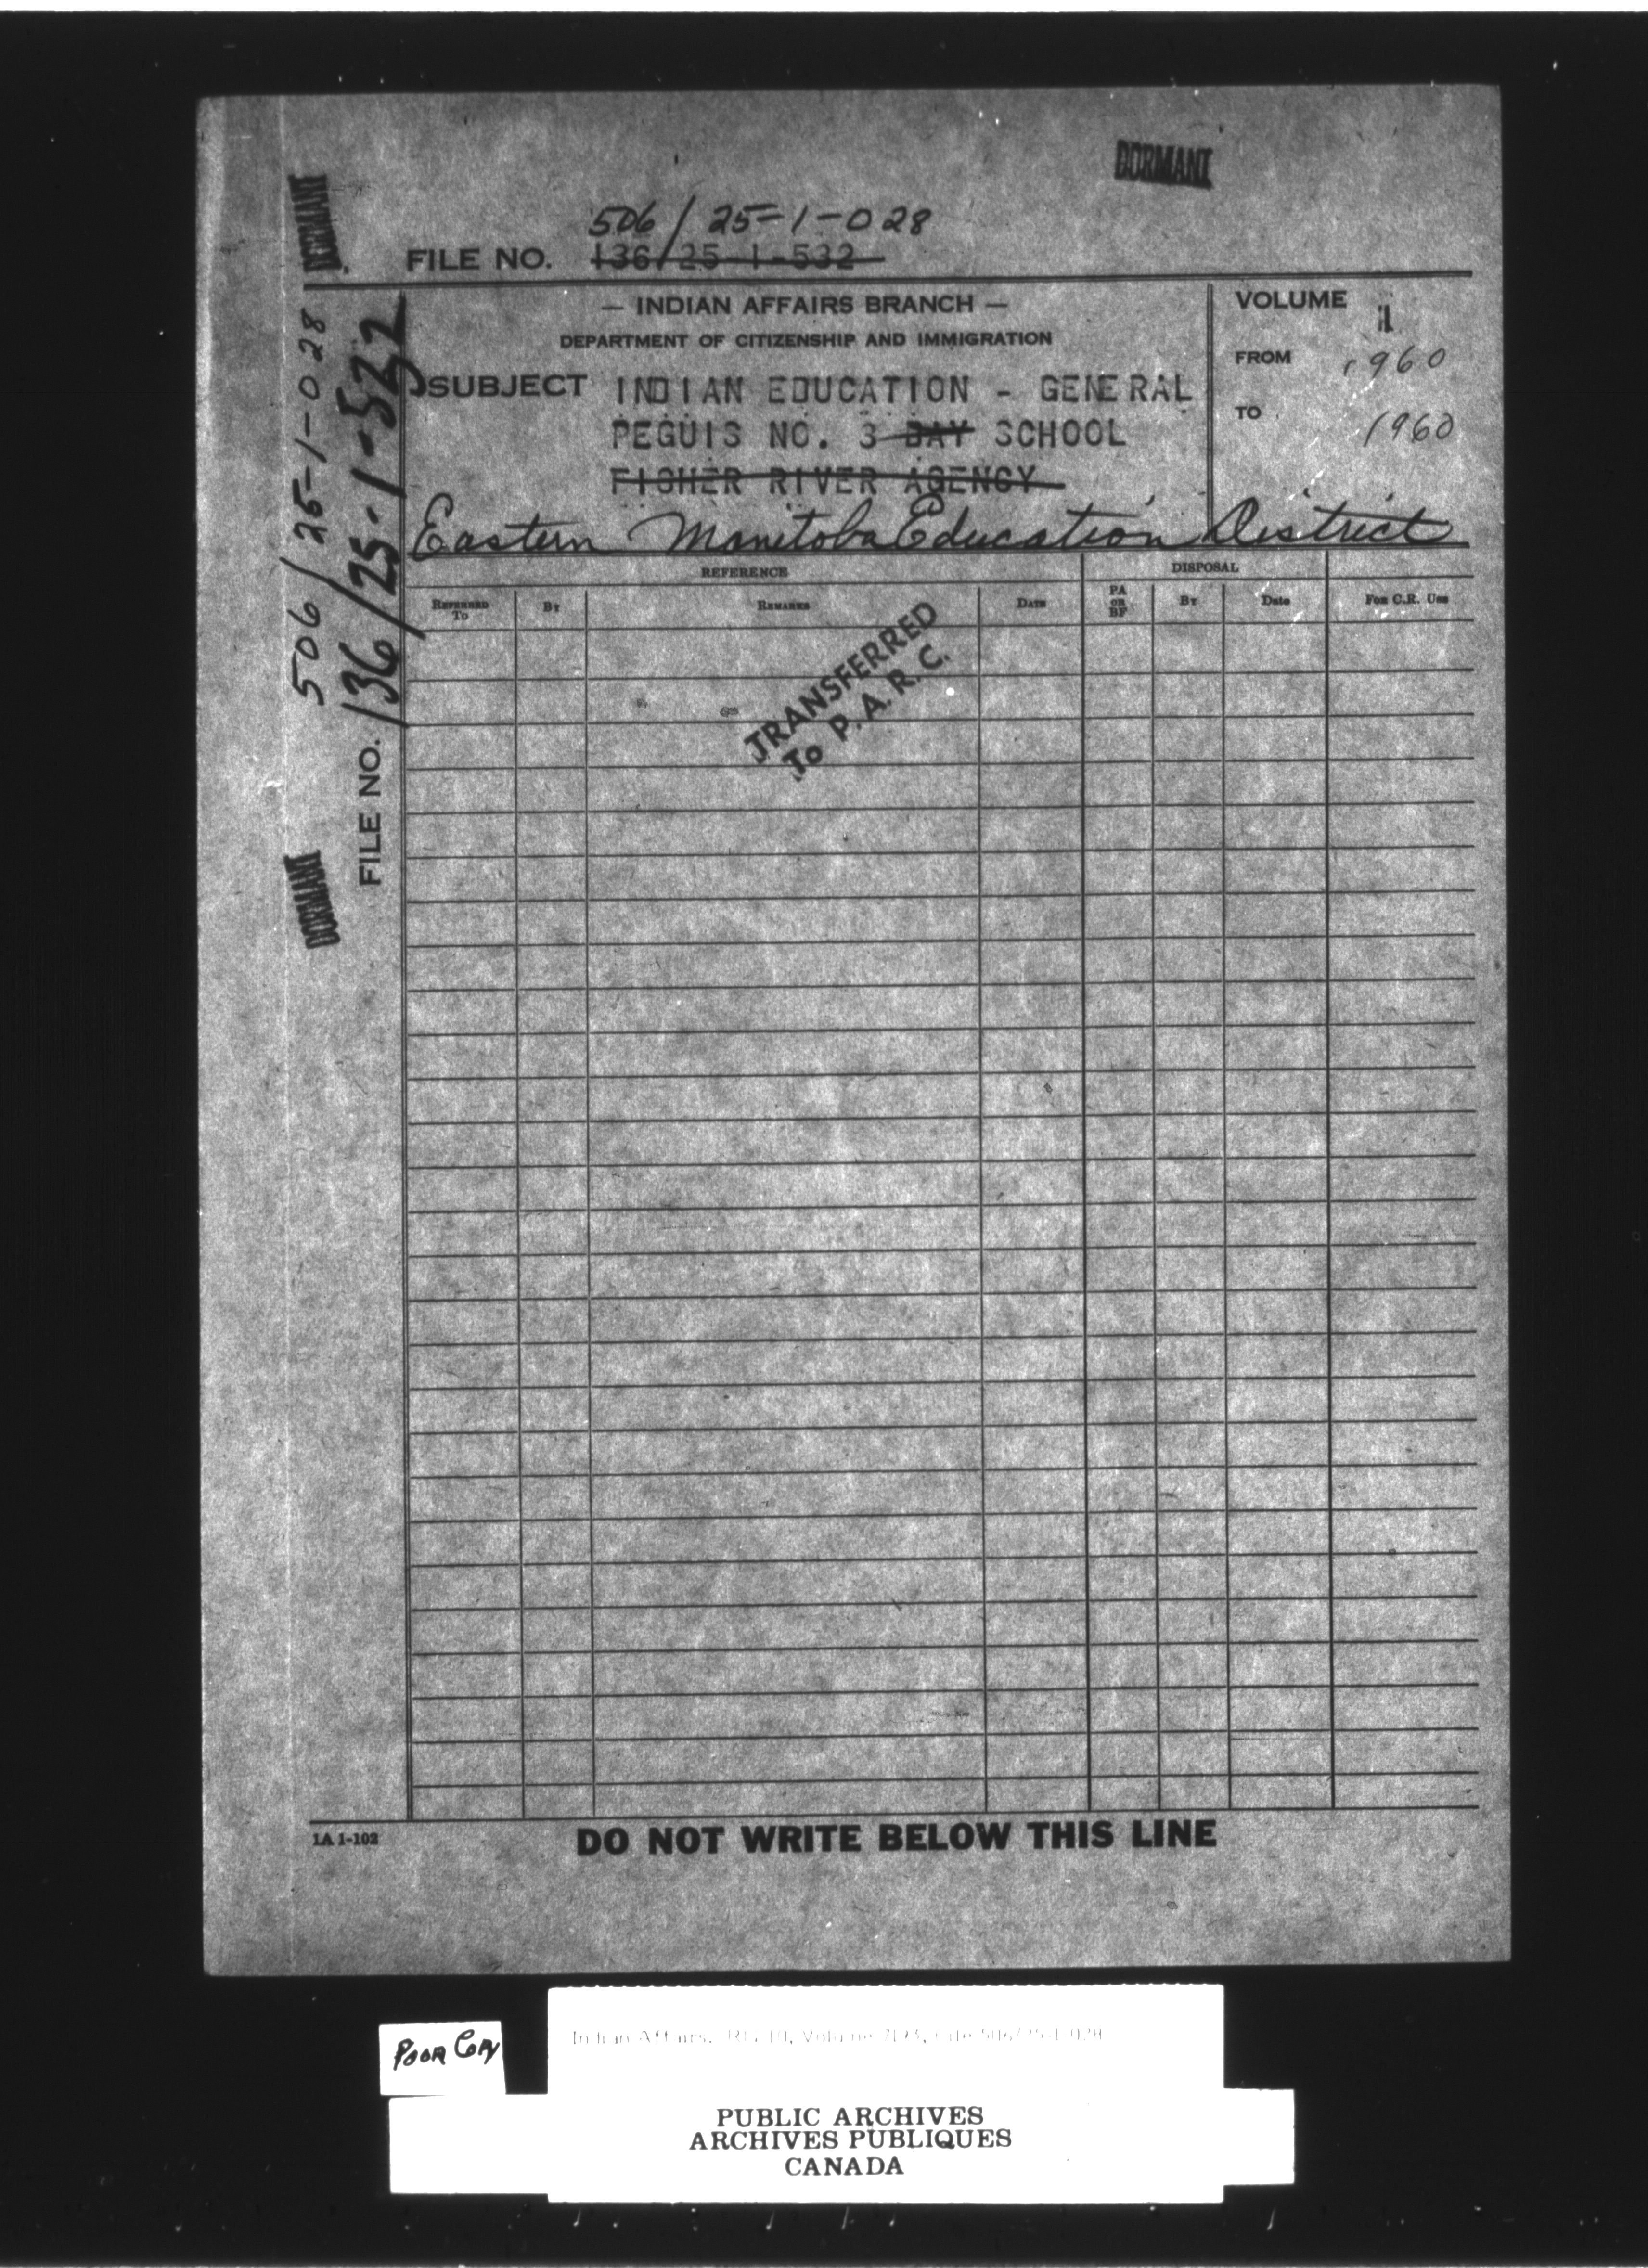 DORMANT
DORMANT
506/25-1-028
FILE NO. 136/25-1-532
— INDIAN AFFAIRS BRANCH —
DEPARTMENT OF CITIZENSHIP AND IMMIGRATION
SUBJECT INDIAN EDUCATION - GENERAL
PEGUIS NO. 3 DAY SCHOOL
FISHER RIVER AGENCY
Eastern Manitoba Education District
VOLUME 1
FROM 1960
TO 1960
506/25-1-028
FILE NO. 136/25-1-532
DORMANT
REFERENCE DISPOSAL
REFERRED TO BY REMARKS DATE PA OR BF BY Date FOR C.R. USE
TRANSFERRED
To P.A.R.C.
IA 1-102
DO NOT WRITE BELOW THIS LINE
POOR COPY
Indian Affairs, RG 10, Volume
PUBLIC ARCHIVES
ARCHIVES PUBLIQUES
CANADA